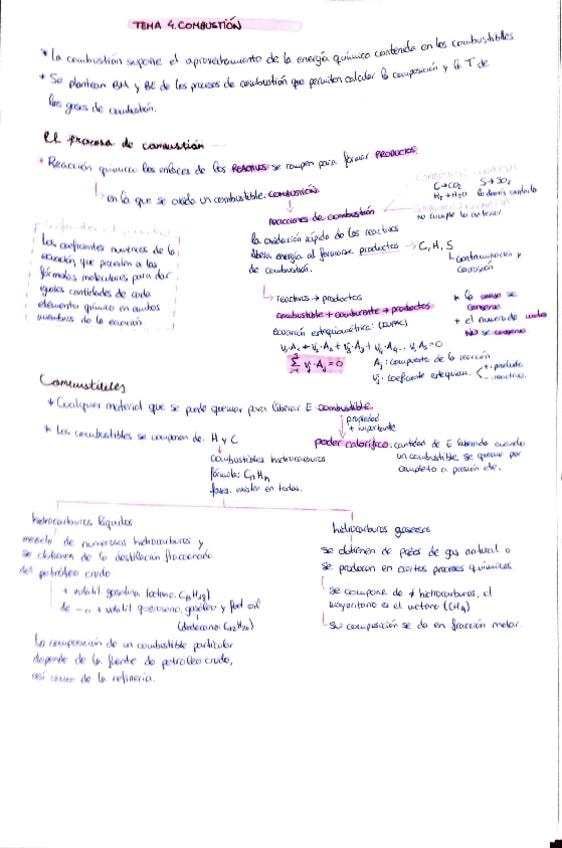 TEMA 4. COMBUSTIÓN
* La combustión supone el aprovechamiento de la energía química contenida en los combustibles
* Se plantean BM y BE de los procesos de combustión que permiten calcular la composición y la T de
los gases de combustión.
El proceso de combustión
* Reacción química: los enlaces de los REACTIVOS se rompen para formar PRODUCTOS.
en la que se oxida un combustible. COMBUSTIÓN
C→CO2 S→SO2
H2→H2O lo demás
no cumple lo anterior
reacciones de combustión
la oxidación rápida de los reactivos
libera energía al formarse productos → C, H, S
de combustión.
contaminación y
corrosión
Los coeficientes numéricos de la
ecuación, que preceden a las
fórmulas moleculares para dar
iguales cantidades de cada
elemento químico en ambos
miembros de la ecuación.
reactivos → productos
combustible + comburente → productos
ecuación estequiométrica:
* la masa se
conserva
+ el numero de moles
NO se conserva
V1·A1 + V2·A2 + V3·A3 + V4·A4... Vi·Ai = 0
Σ Vj·Aj = 0
Aj: compuesto de la reacción
Vj: coeficiente estequiom. + producto
- reactivo.
Combustibles
* Cualquier material que se puede quemar para liberar E combustible.
propiedad
+ importante
* Los combustibles se componen de: H y C
poder calorífico: cantidad de E liberada cuando
un combustible se quema por
completo a presión cte.
combustibles hidrocarburos
fórmula: CnHm
fases: existen en todas.
hidrocarburos líquidos
mezcla de numerosos hidrocarburos y
se obtienen de la destilación fraccionada
del petróleo crudo
+ volátil gasolina (octano, C8H18)
- volátil queroseno, gasóleo y fuel oil
(dodecano: C12H26)
La composición de un combustible particular
depende de la fuente de petróleo crudo,
así como de la refinería.
hidrocarburos gaseosos
se obtienen de pozos de gas natural o
se producen en ciertos procesos químicos
se compone de ≠ hidrocarburos, el
mayoritario es el metano (CH4)
su composición se da en fracción molar.